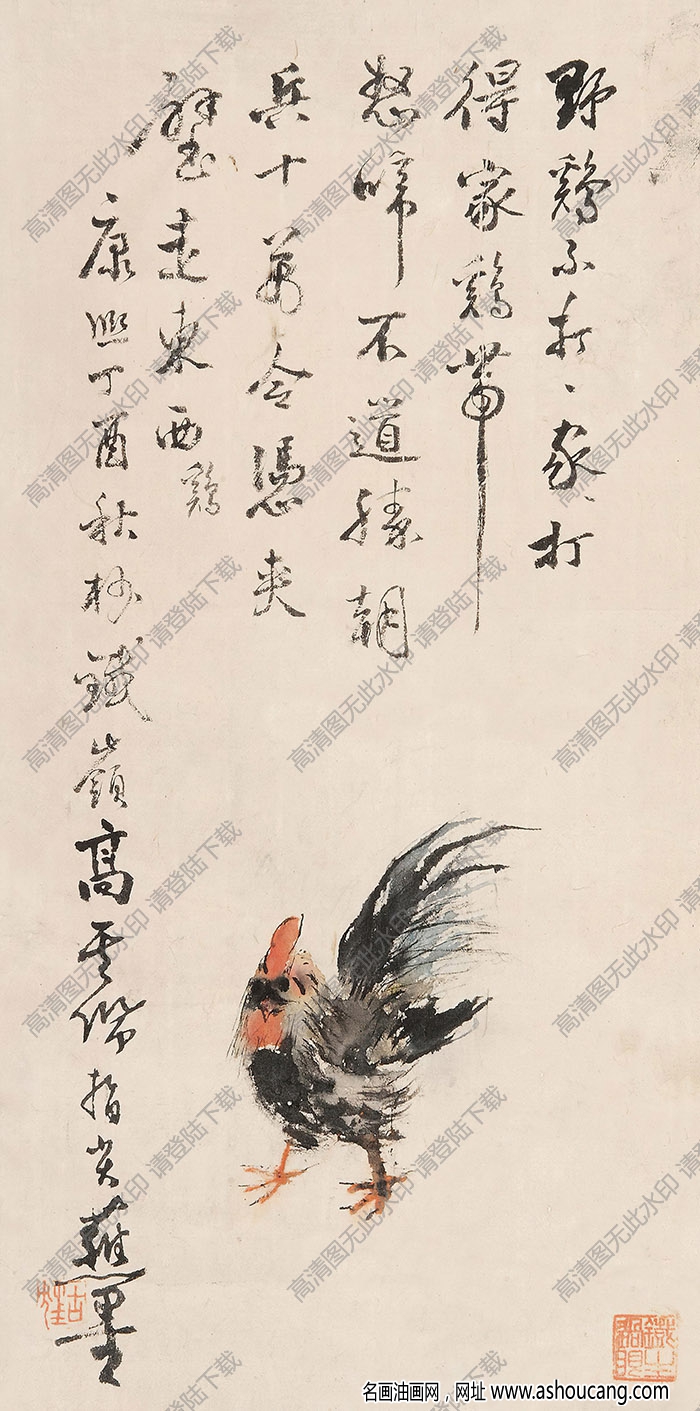 野鷄不打、家、打
得家鷄帶
愁啼不道勝朝
兵十萬全憑夾
壁走東西鷄
康熙丁酉秋杪鐵嶺高其佩指尖蘸墨
高清图无此水印 请登陆下载
名画油画网，网址 www.ashoucang.com